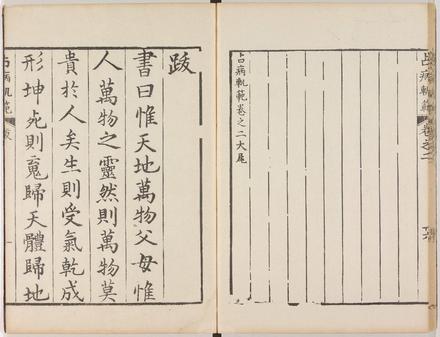 占病軌範 卷之二
占病軌範卷之二大尾
跋
書曰惟天地萬物父母惟
人萬物之靈然則萬物莫
貴於人矣生則受氣乾成
形坤死則䰟歸天體歸地
占病軌範 跋